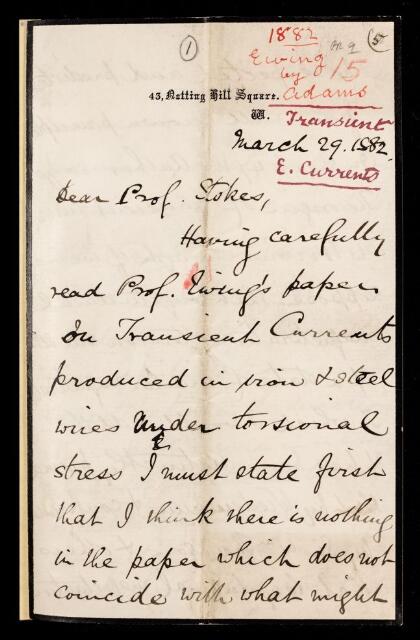 1
1882
Ewing
by
Adams
15
43, Notting Hill Square.
W.
Transient
March 29. 1882.
E. Currents
Dear Prof. Stokes,
Having carefully
read Prof. Ewing's paper
On Transient Currents
produced in iron & steel
wires under torsional
stress I must state first
that I think there is nothing
in the paper which does not
coincide with what might